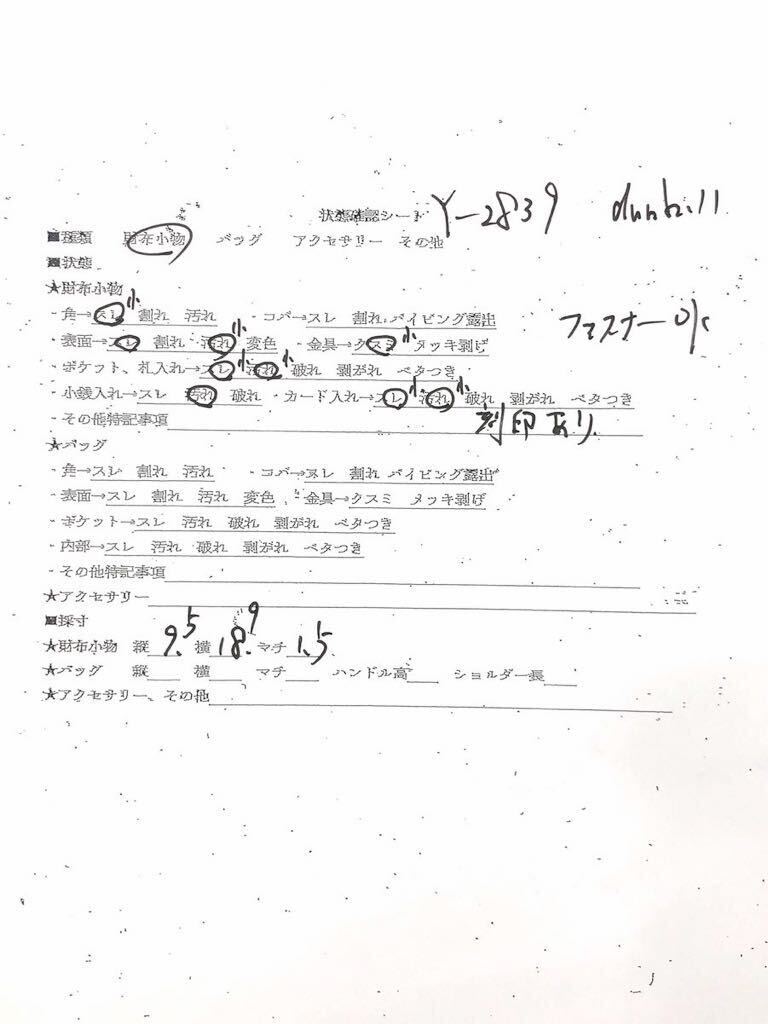 状態確認シート Y-2839 dunhill
■種類 財布小物 バッグ アクセサリー その他
■状態
★財布小物
・角→スレ小 割れ 汚れ ・コバ→スレ 割れ パイピング露出 ファスナーOK
・表面→スレ 割れ 汚れ小 変色 ・金具→クスミ小 メッキ剥げ
・ポケット、札入れ→スレ小 汚れ小 破れ 剥がれ ベタつき
・小銭入れ→スレ 汚れ 破れ ・カード入れ→スレ小 汚れ小 破れ 剥がれ ベタつき
・その他特記事項 刻印あり
★バッグ
・角→スレ 割れ 汚れ ・コバ→スレ 割れ パイピング露出
・表面→スレ 割れ 汚れ 変色 ・金具→クスミ メッキ剥げ
・ポケット→スレ 汚れ 破れ 剥がれ ベタつき
・内部→スレ 汚れ 破れ 剥がれ ベタつき
・その他特記事項
★アクセサリー
■採寸
★財布小物 縦9.5 横18.9 マチ1.5
★バッグ 縦 横 マチ ハンドル高 ショルダー長
★アクセサリー、その他